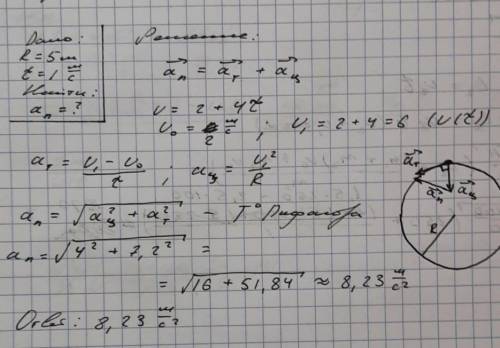 Дано:
R = 5 м
t = 1 м/с
Найти:
aₙ = ?
Решение:
a⃗ₙ = a⃗τ + a⃗ц
v = 2 + 4t
v₀ = 2 м/с ; v₁ = 2 + 4 = 6 (v(t))
aτ = (v₁ − v₀)/t ; aц = v₁²/R
aₙ = √(aц² + aτ²) – T° Пифагора
aₙ = √(4² + 7,2²) =
= √(16 + 51,84) ≈ 8,23 м/с²
Ответ: 8,23 м/с²
a⃗τ
a⃗ₙ
a⃗ц
R